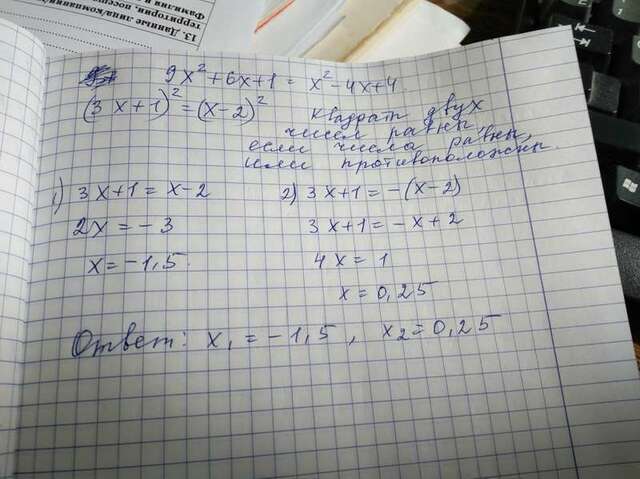 13. Данные
территории, посещ
Фамилия
9x² + 6x + 1 = x² - 4x + 4
(3x + 1)² = (x - 2)²
Квадрат двух
чисел равны,
если числа равны,
или противоположны.
1) 3x + 1 = x - 2
2x = - 3
x = - 1,5.
2) 3x + 1 = - (x - 2)
3x + 1 = - x + 2
4x = 1
x = 0,25
Ответ: x₁ = - 1,5 , x₂ = 0,25